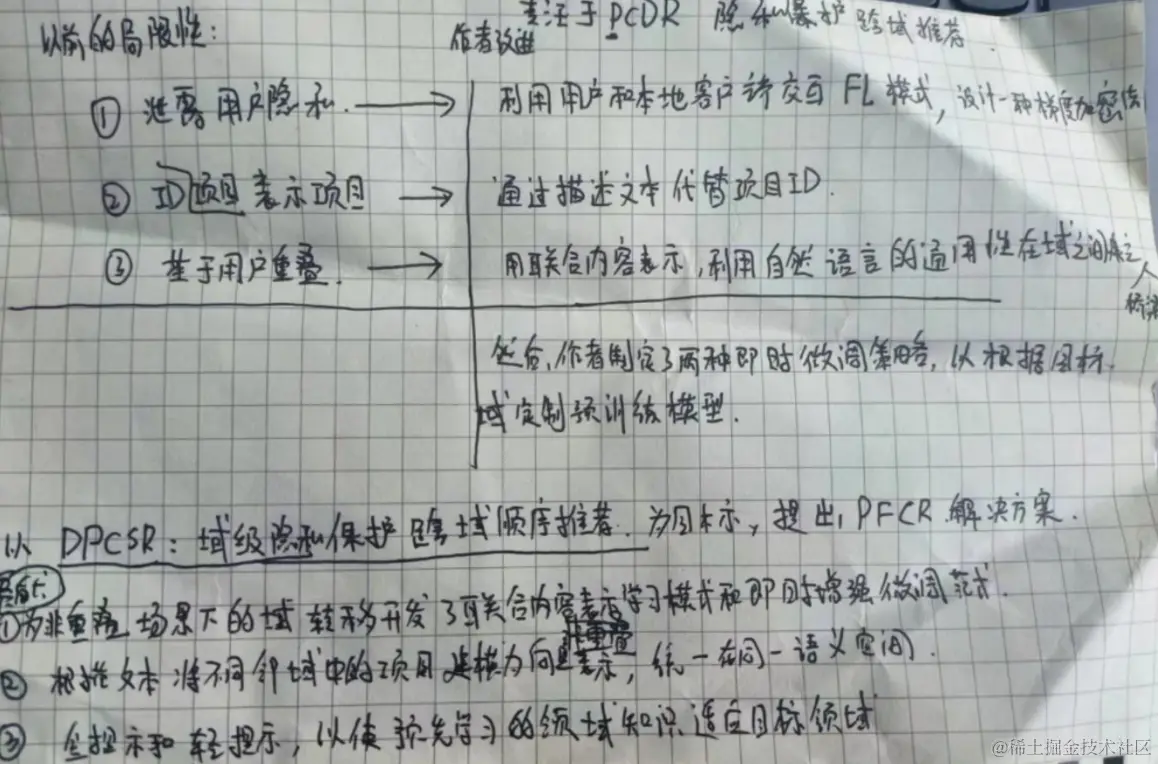 专注于PCDR 隐私保护跨域推荐.
以前的局限性: 作者改进
① 泄露用户隐私. → 利用用户和本地客户端交互FL模式,设计一种梯度加密法
② ID项目表示项目 → 通过描述文本代替项目ID.
③ 基于用户重叠. → 用联合内容表示,利用自然语言的通用性在域之间建立
桥梁
然后,作者制定了两种即时微调策略,以根据目标.
域定制预训练模型.
以 DPCSR: 域级隐私保护跨域顺序推荐. 为目标, 提出PFCR解决方案.
①为非重叠场景下的域转移开发了联合内容表示学习模式和即时增强微调范式.
非重叠
② 根据文本将不同领域中的项目建模为向量表示, 统一在同一语义空间.
③ 全提示和轻提示, 以使预先学习的领域知识适应目标领域
@稀土掘金技术社区